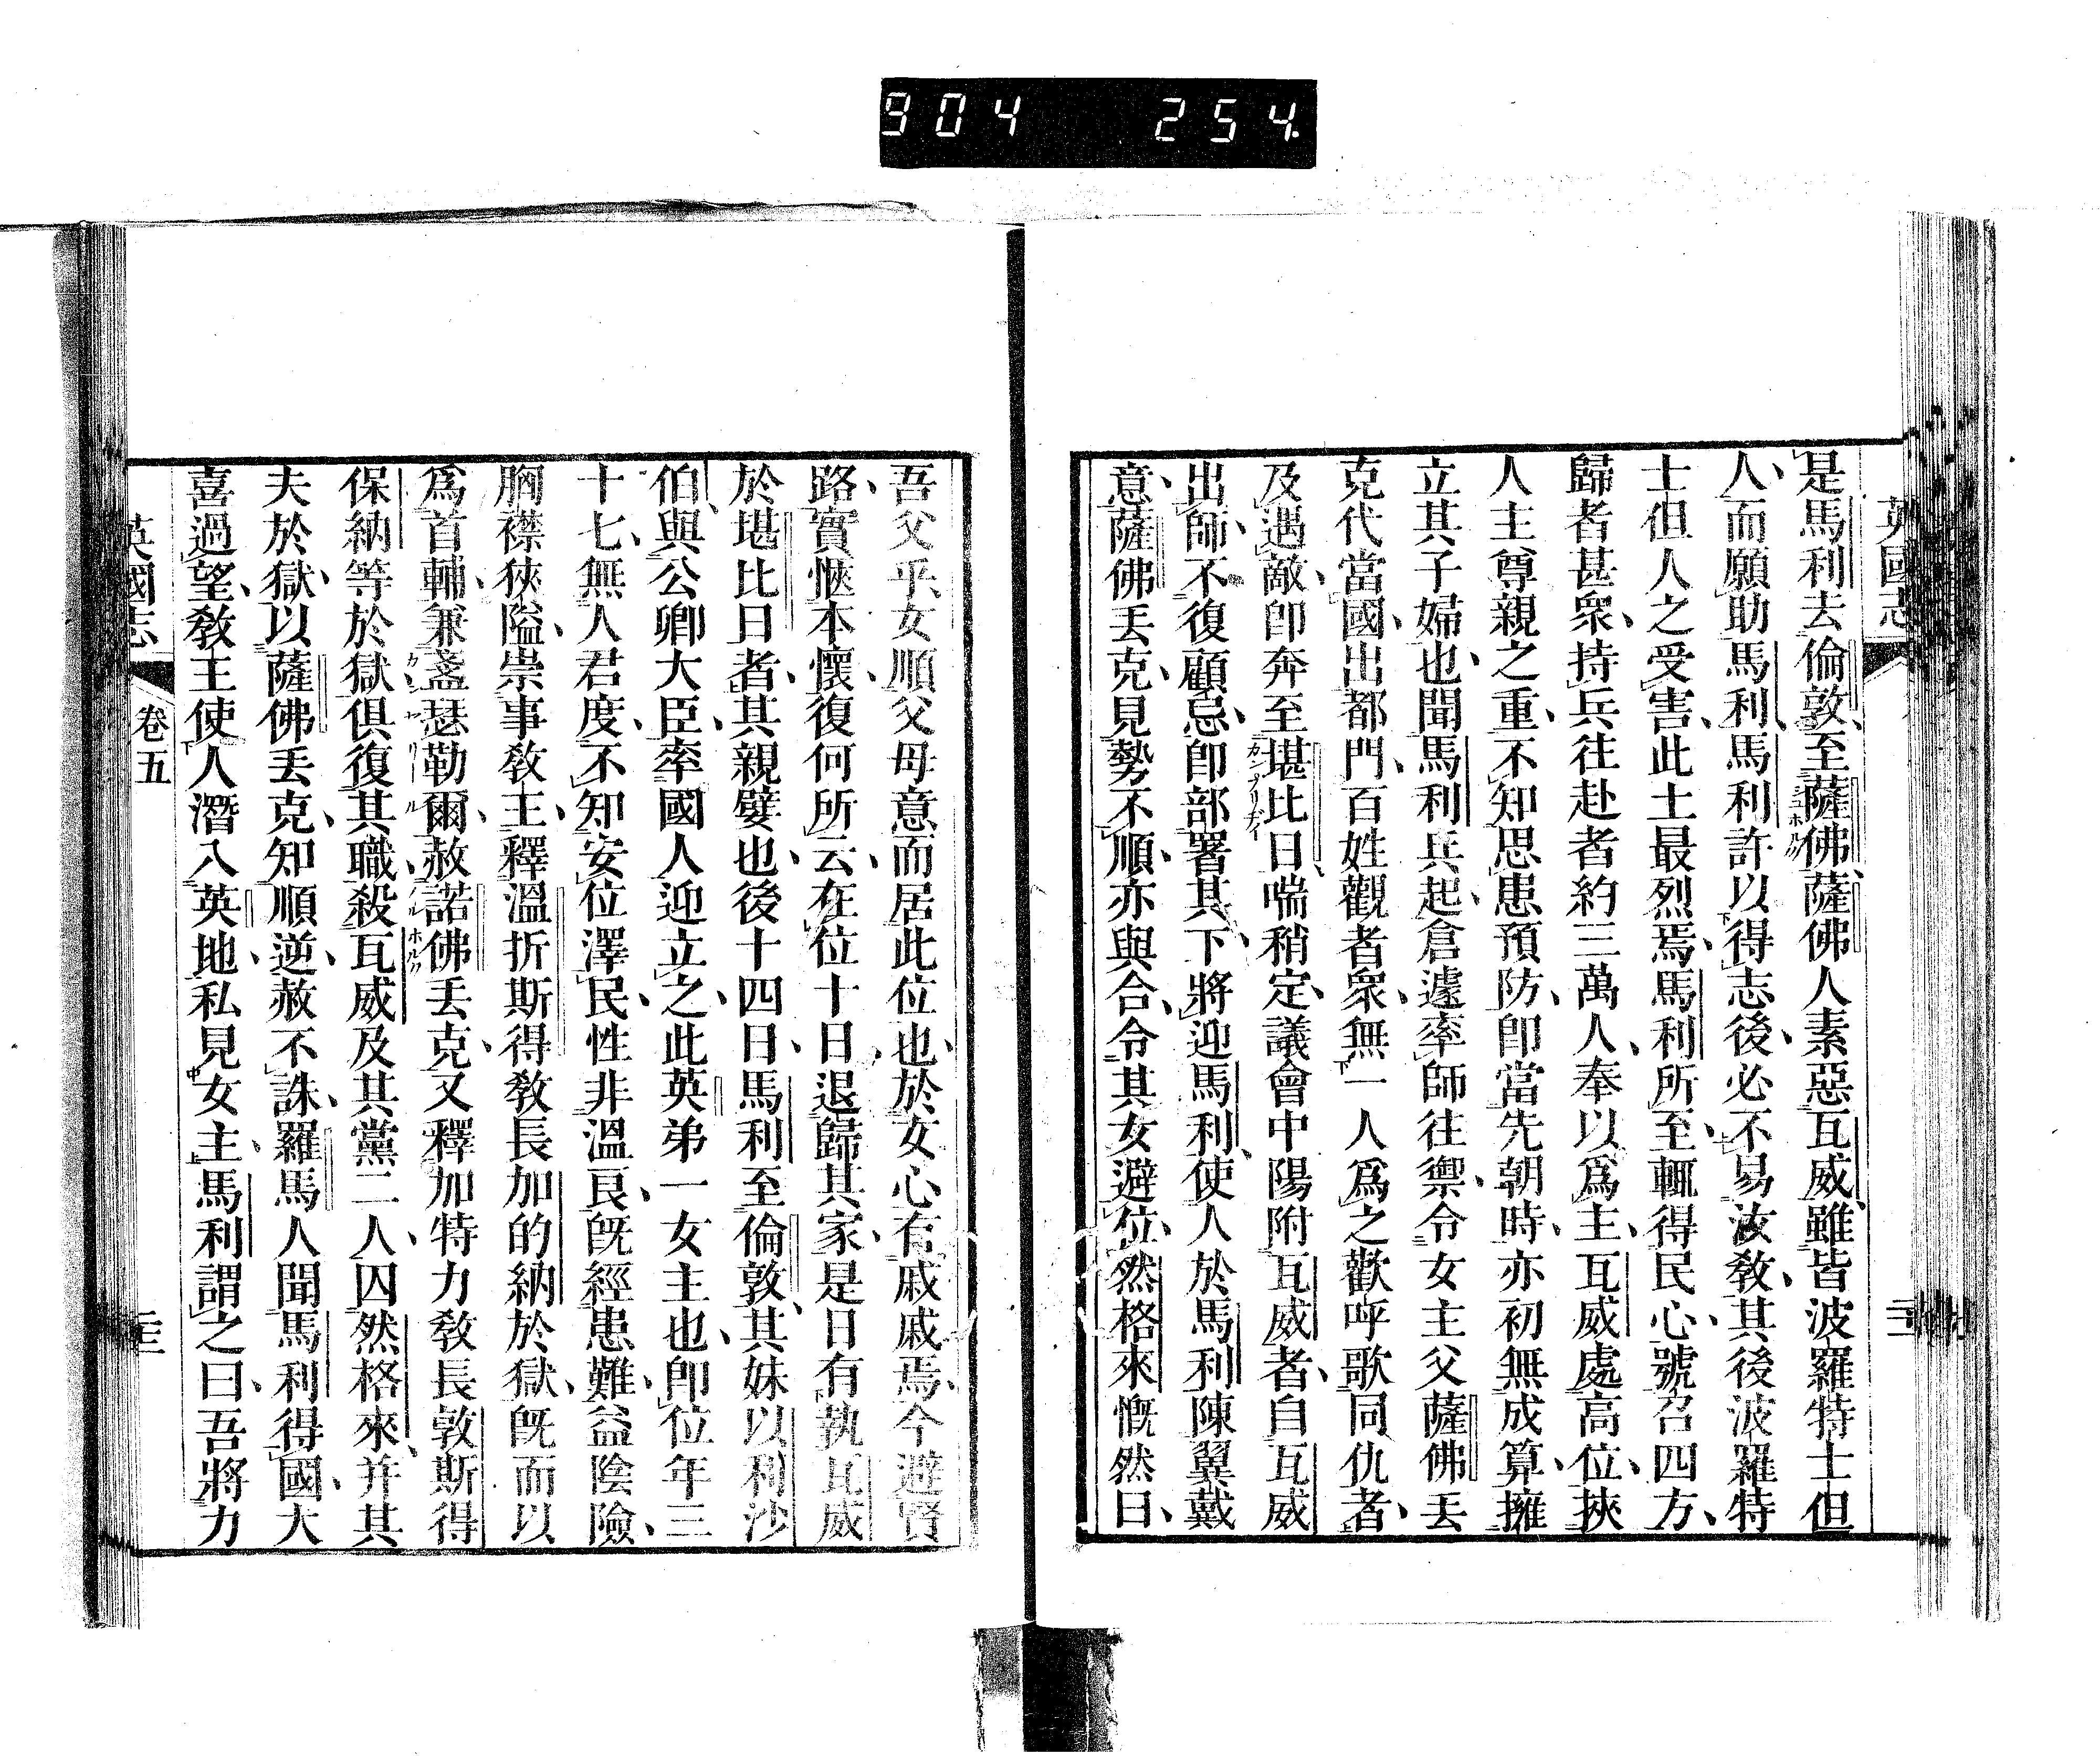 904 254.
英國志
是馬利去倫敦、至薩佛、薩佛人素惡瓦威、雖皆波羅特士但
人、而願助馬利、馬利許以得志後、必不易汝敎、其後波羅特
士但人之受害、此士最烈焉、馬利所至、輒得民心、號召四方、
歸者甚衆、持兵往赴者約三萬人、奉以爲主、瓦威處高位、挾
人主尊親之重、不知思患預防、卽當先朝時、亦初無成算、擁
立其子婦也、聞馬利兵起、倉遽率師往禦、令女主父薩佛丟
克代當國、出都門、百姓觀者衆、無一人爲之歡呼歌同仇者、
及遇敵、卽奔至堪比日、喘稍定、議會中陽附瓦威者、自瓦威
出師、不復顧忌、卽部署其下、將迎馬利、使人於馬利陳翼戴
意、薩佛丟克、見勢不順、亦與合、令其女避位、然格來慨然曰、
吾父乎、女順父母意而居此位也、於女心有戚戚焉、今避賢
路、實愜本懷、復何所云、在位十日、退歸其家、是日有執瓦威
於堪比日者、其親嬖也、後十四日、馬利至倫敦、其妹以利沙
伯、與公卿大臣、率國人迎立之、此英弟一女主也、卽位年三
十七、無人君度、不知安位澤民、性非溫良、旣經患難、益陰險、
胸襟狹隘、崇事敎王、釋溫折斯得敎長加的納於獄、旣而以
爲首輔、兼盞瑟勒爾、赦諾佛丟克、又釋加特力敎長敦斯得
保納等於獄、俱復其職、殺瓦威及其黨二人、囚然格來、并其
夫於獄、以薩佛丟克、知順逆、赦不誅、羅馬人聞馬利得國、大
喜過望、敎王使人潛入英地、私見女主、馬利謂之曰、吾將力
英國志
卷五
二十三